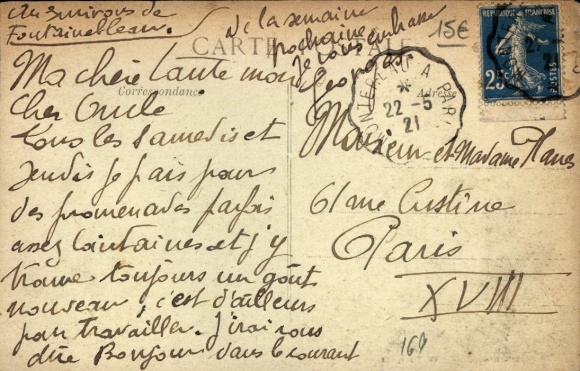 aux environs de
Fontainebleau.
Ma chère tante mon
cher Oncle
Tous les samedis et
Jeudis je pars pour
des promenades parfois
assez lointaines et j'y
trouve toujours un goût
nouveau, c'est d'ailleurs
pour travailler. J'irai vous
dire Bonjour dans le courant
de la semaine
prochaine
Je vous embrasse
Georges
15€
CARTE POSTALE
Correspondance
Adresse
A PARIS
22-5
21
REPUBLIQUE FRANÇAISE
25c
POSTES
Monsieur et Madame
61 rue Custine
Paris
XVIII
169